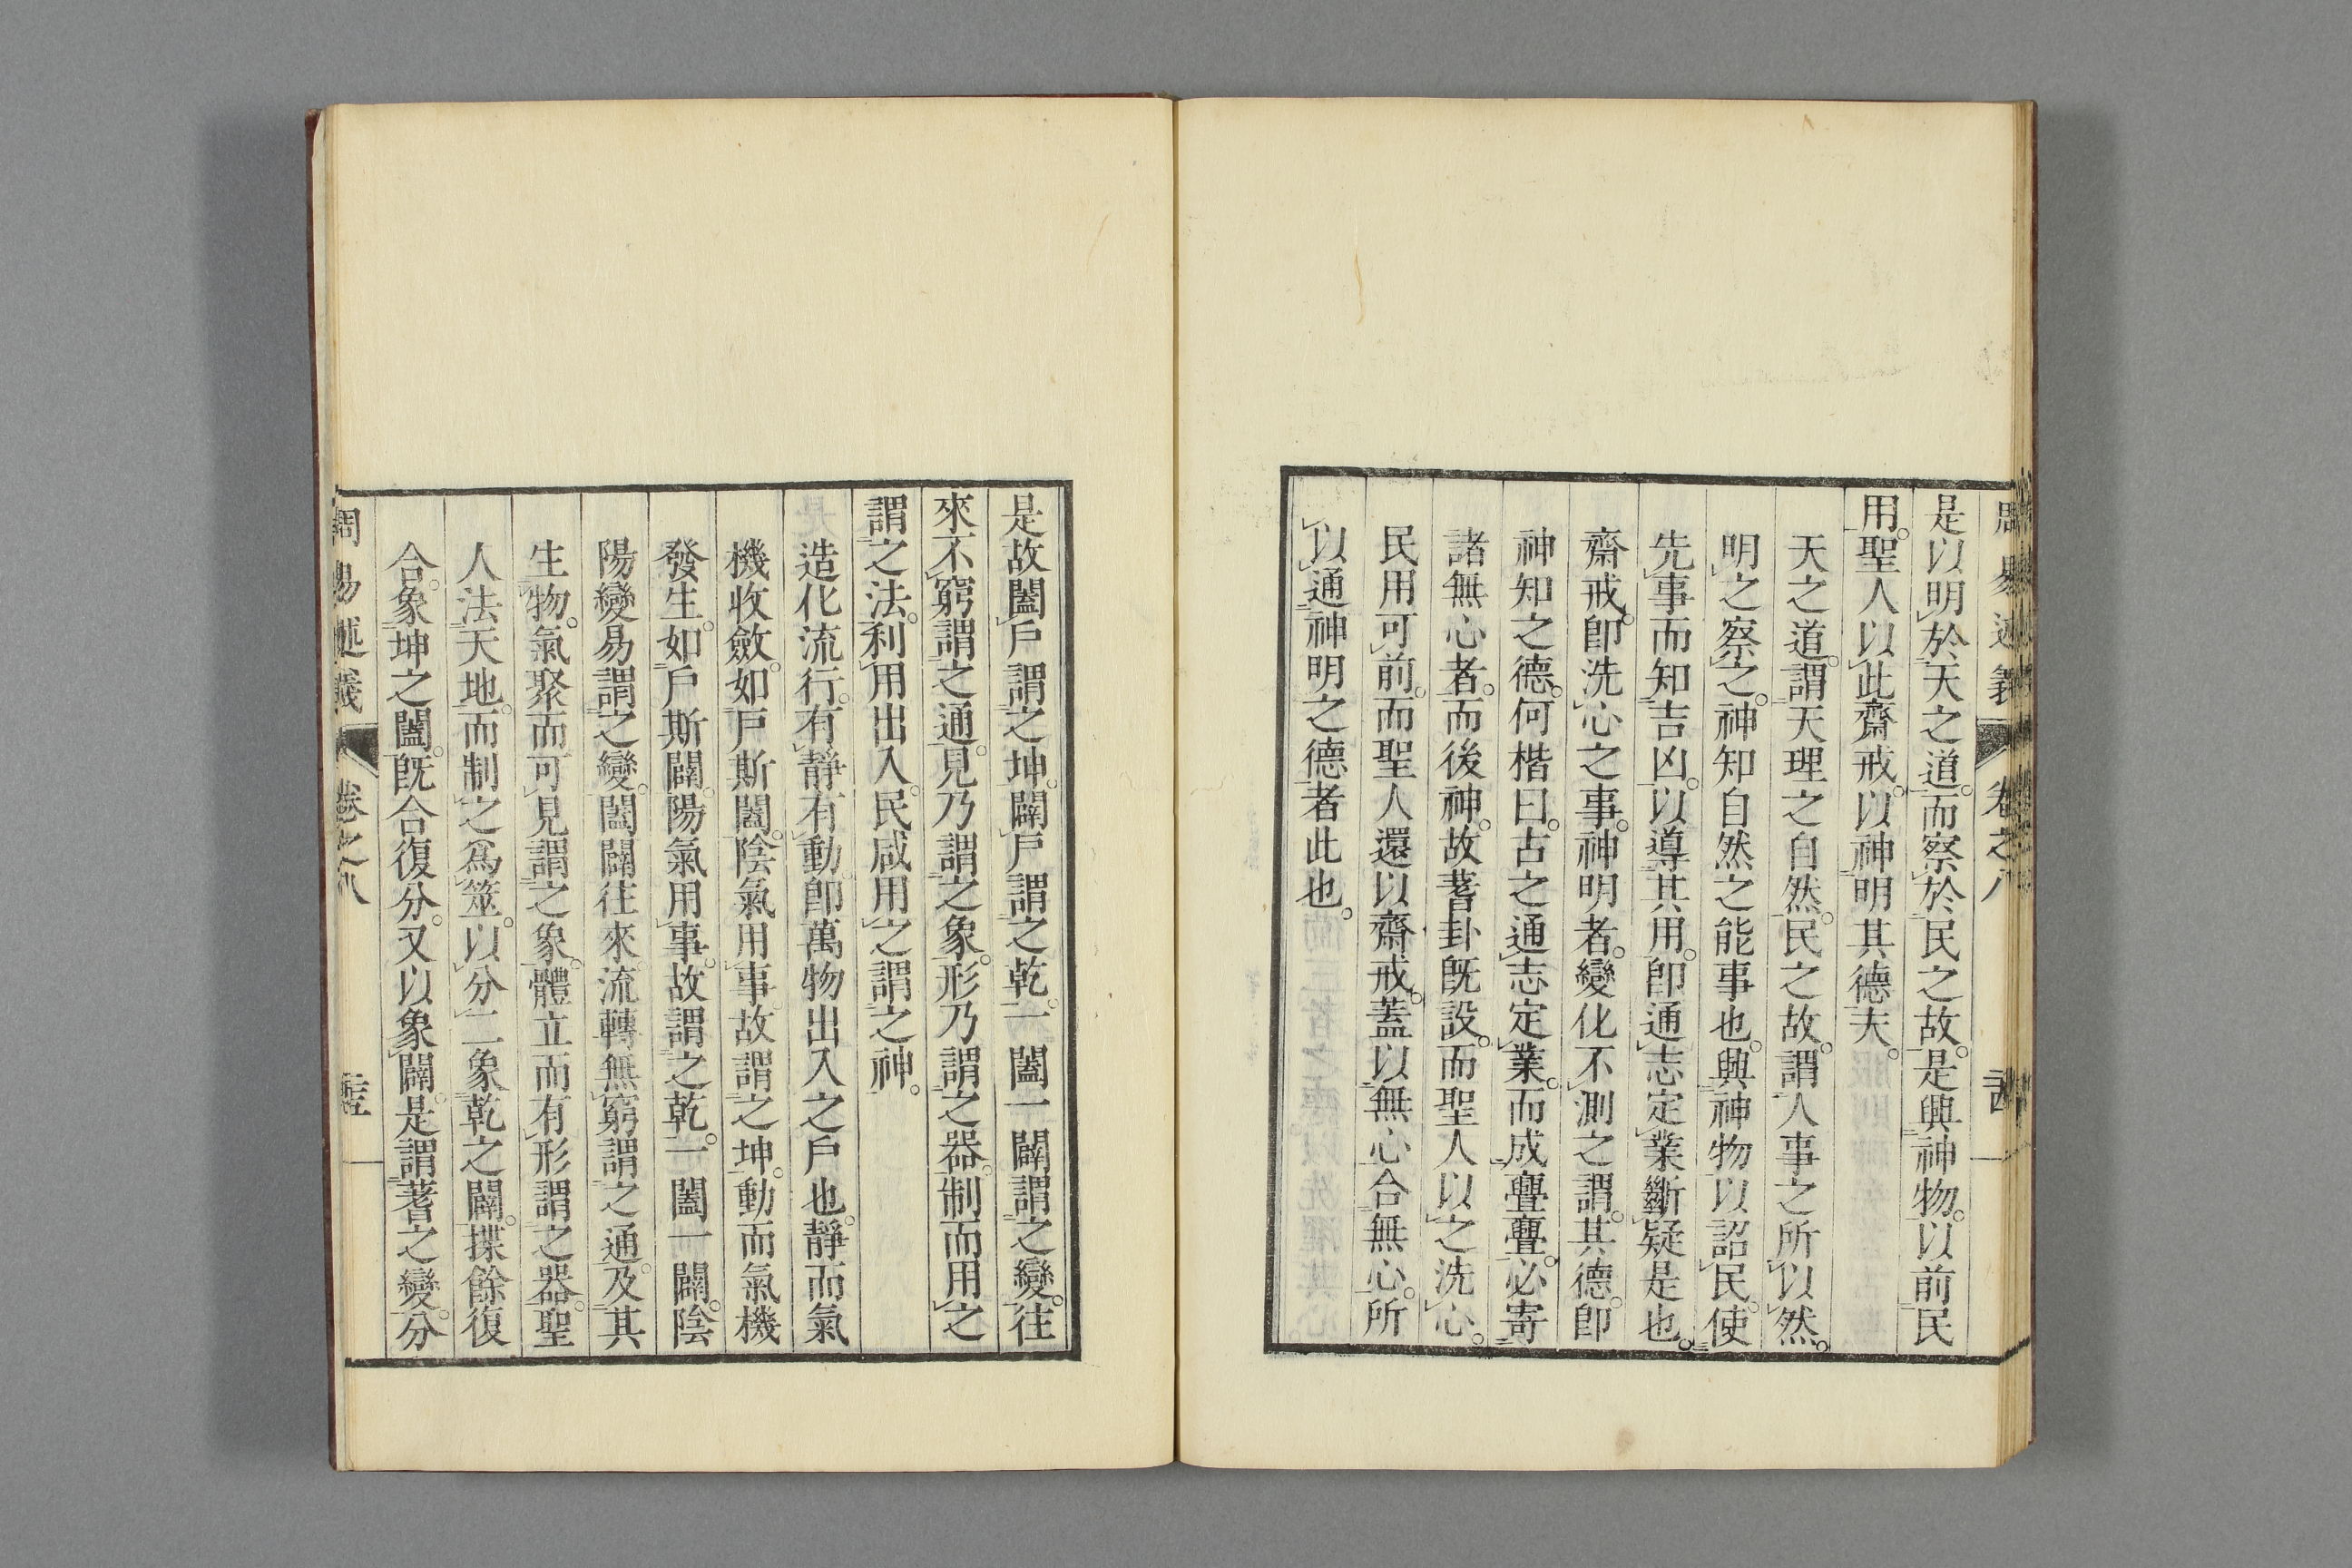 周易述義　卷之八
是以明於天之道。而察於民之故。是興神物。以前民
用。聖人以此齋戒。以神明其德夫。
天之道。謂天理之自然。民之故。謂人事之所以然。
明之察之。神知自然之能事也。興神物以詔民。使
先事而知吉凶。以導其用。卽通志定業斷疑是也。
齋戒。卽洗心之事。神明者。變化不測之謂。其德。卽
神知之德。何楷曰。古之通志定業。而成亹亹。必寄
諸無心者。而後神。故蓍卦旣設。而聖人以之洗心。
民用可前。而聖人還以齋戒。蓋以無心合無心。所
以通神明之德者此也。
是故闔戶謂之坤。闢戶謂之乾。一闔一闢謂之變。往
來不窮謂之通。見乃謂之象。形乃謂之器。制而用之
謂之法。利用出入。民咸用之謂之神。
造化流行。有靜有動。卽萬物出入之戶也。靜而氣
機收斂。如戶斯闔。陰氣用事。故謂之坤。動而氣機
發生。如戶斯闢。陽氣用事。故謂之乾。一闔一闢。陰
陽變易謂之變。闔闢往來流轉無窮謂之通。及其
生物。氣聚而可見謂之象。體立而有形謂之器。聖
人法天地。而制之爲筮。以分二象乾之闢。揲餘復
合。象坤之闔。旣合復分。又以象闢。是謂蓍之變。分
周易述義　卷之八